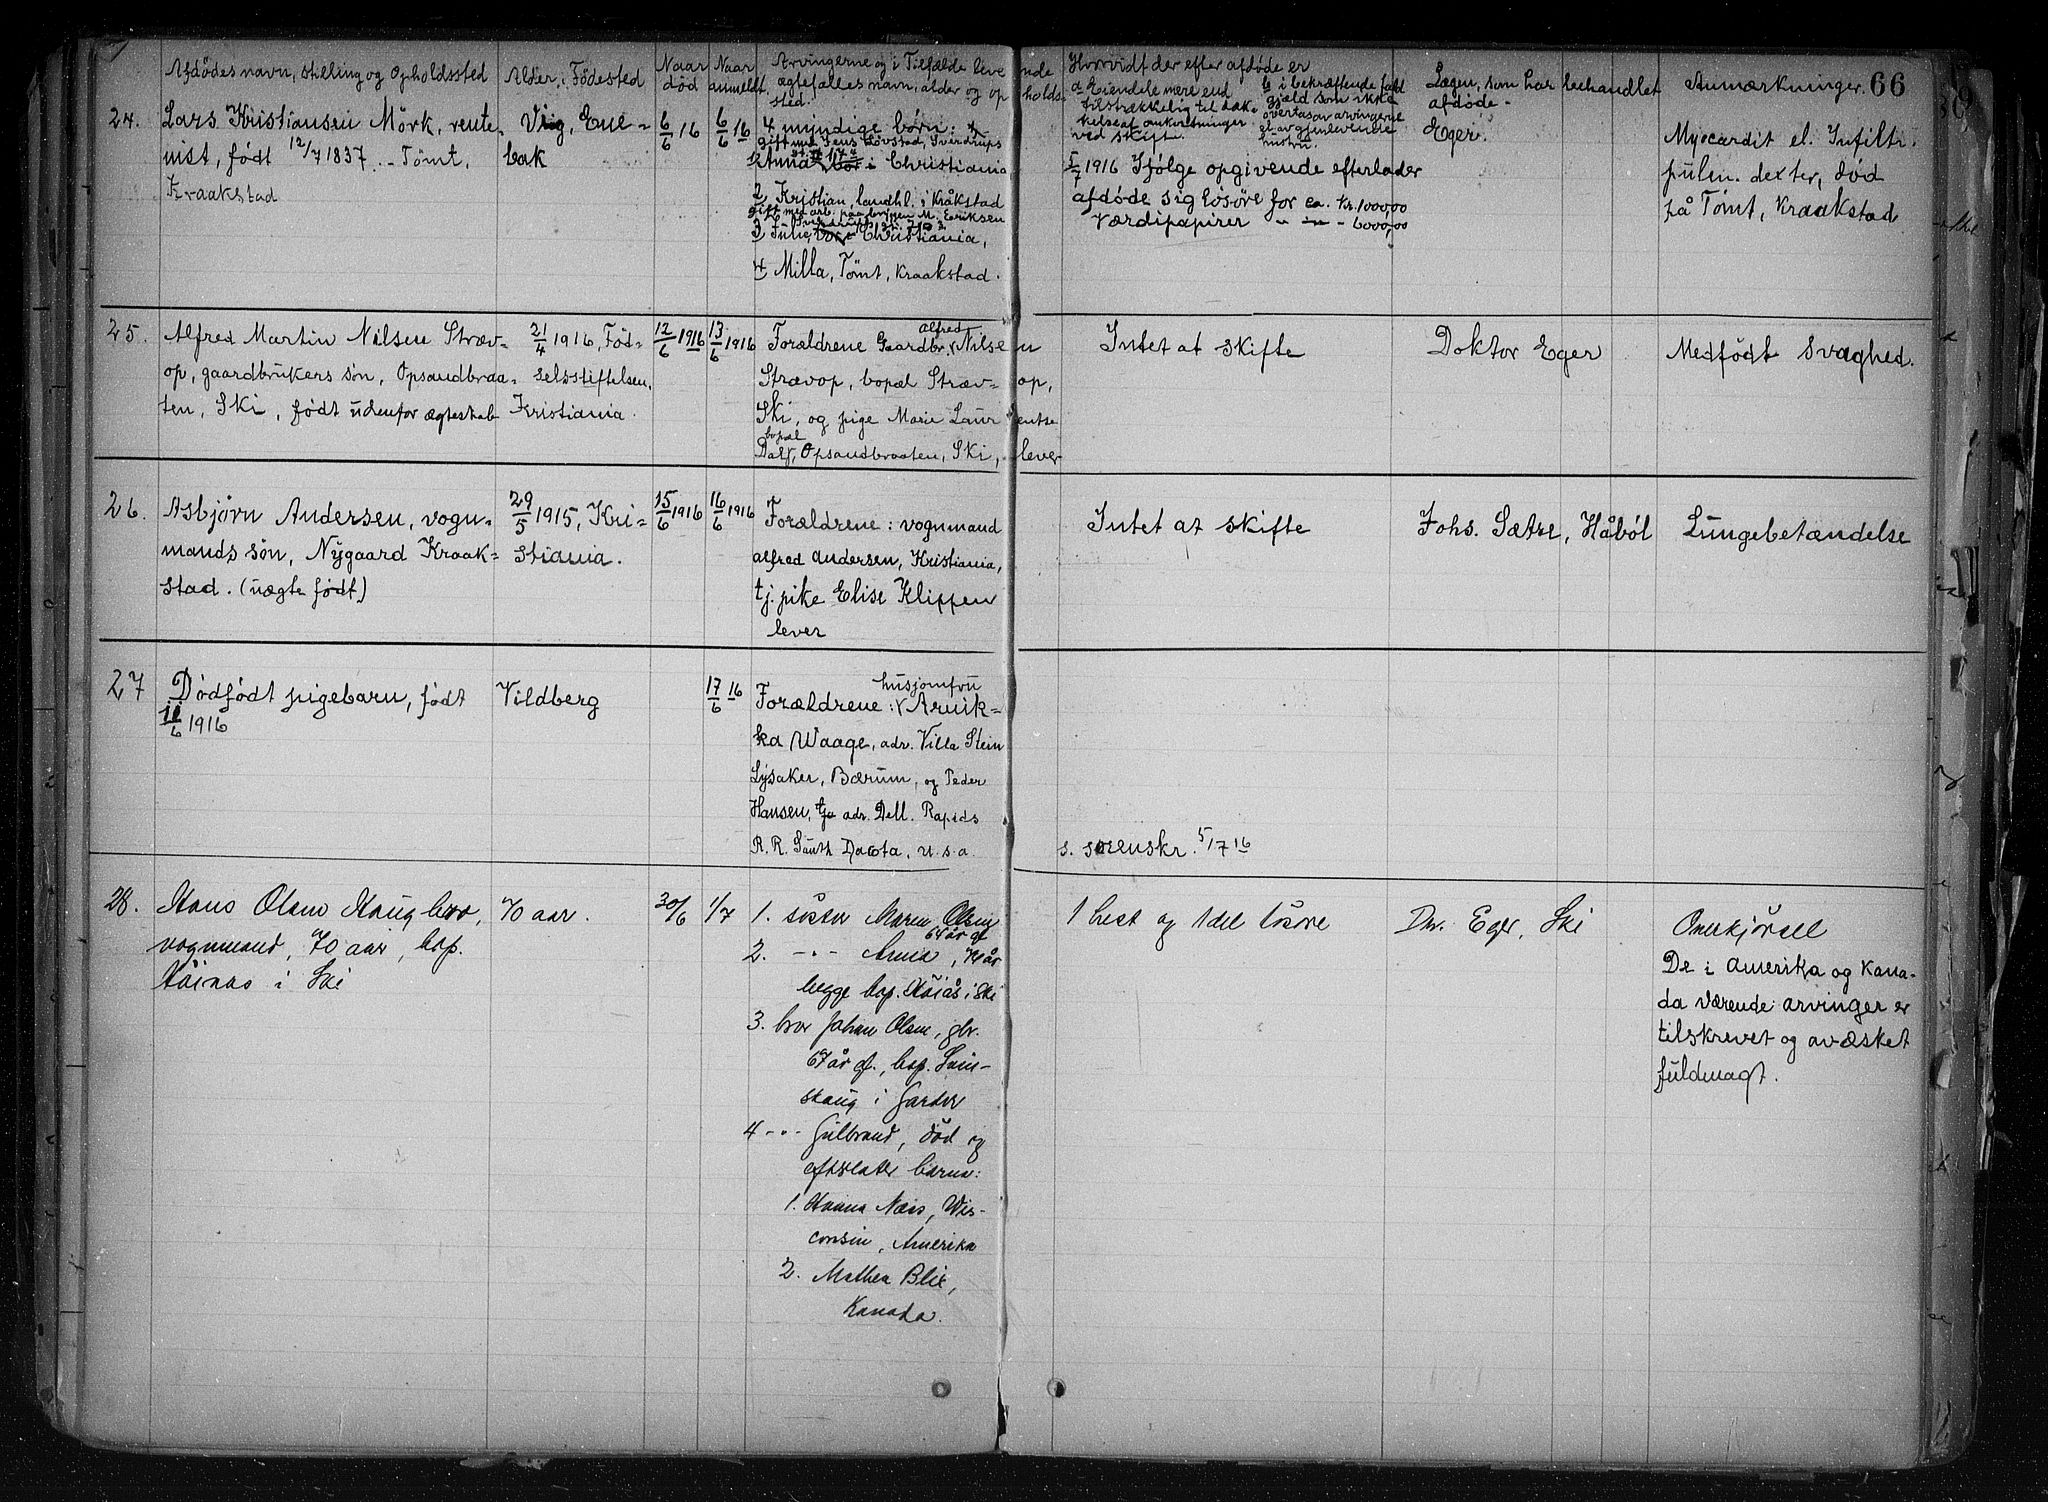 66
Afdødes navn, stilling og Opholdssted
Alder, Fødested
Naar død
Naar anmeldt
Arvingerne og i Tilfælde leve nde
ægtefælles navn, alder og op holds-
sted.
Hvorvidt der efter afdøde er
a Eiendele mere end
tilstrækkelig til dæk-
kelse af omkostninger
ved skifte.
b i bekræftende fald
gjæld som ikke
overtas av arvingerne
el. av gjenlevende
hustru.
Lægen, som har behandlet
afdøde.
Anmærkninger.
24.
Lars Kristiansen Mörk, rente-
nist, født 12/7 1837. - Tømt,
Kraakstad
Vig, Ene-
bak
6/6 16
6/6 16
4 myndige børn:
gift med Jens Lövstad, Sverdrups
Anna i Christiania
2 Kristian, landhl. i Kråkstad
gift med arb. paa bryggen M. Eriksen
3 Julie, Christiania,
4 Milla, Tömt, Kraakstad.
5/7 1916 Ifölge opgivende efterlader
afdøde sig lösöre for ca. kr. 1000,00
Værdipapirer " - " - 6000,00
Eger.
Myocardit el. Infiltr.
pulm. dexter, død
på Tömt, Kraakstad
25.
Alfred Martin Nilsen Stræv-
op, gaardbrukers søn, Opsandbraa-
ten, Ski, født udenfor ægteskab
21/4 1916, Föd-
selsstiftelsen,
Kristiania.
12/6 1916
13/6 1916
alfred
Forældrene Gaardbr. Nilsen
Strævop, bopæl Stræv-op,
Ski, og pige Marie Laurentse
bopæl
Dal, Opsandbraaten, Ski, lever
Intet at skifte
Doktor Eger
Medfödt Svaghed.
26.
Asbjørn Andersen, vogn-
mands søn, Nygaard Kraak-
stad. (uægte født)
29/5 1915, Kri-
stiania.
15/6 1916
16/6 1916
Forældrene: vognmand
alfred andersen, Kristiania,
tj. pike Elise Klippen
lever
Intet at skifte
Johs. Sætre, Håböl
Lungebetændelse
27
Dödfödt pigebarn, født
11/6 1916
Vildberg
17/6 16
husjomfru
Forældrene: Arnik-
ka Waage, adr. Villa Stein
Lysaker, Bærum, og Peder
Hansen, adr. Dell. Rapids
R. R. South Dacota, u. s. a.
s. sorenskr. 5/7 16
28.
Hans Olsen Haugbro,
vognmand, 70 aar, bop.
Höiaas i Ski
70 aar.
30/6
1/7
1. söster Maren Olsen
64 år gl
2. -"- Anne, 74 år
begge bop. Höiås i Ski
3. bror Johan Olsen, gbr.
67 år gl., bop. Sun-
skaug i Garder
4 -"- Gulbrand, död og
efterlater barna:
1. Hanna Næss, Wis-
consin, Amerika
2. Mathea Blix,
Kanada.
1 hest og 1 del lösöre
Dr. Eger, Ski
Overkjörsel
De i amerika og Kana-
da værende arvinger er
tilskrevet og avæsket
fuldmagt.